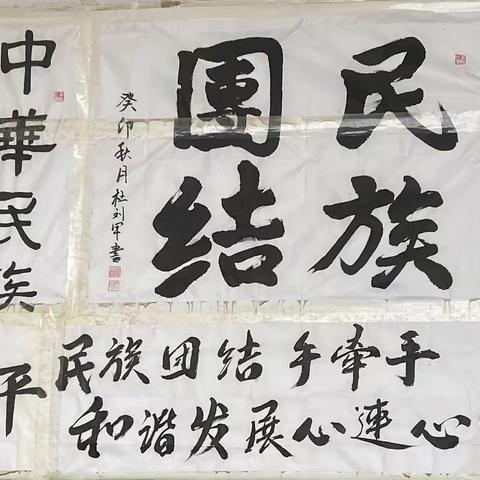 民族
團結
癸卯秋月杜刘军書
中華民族
平
民族团结手牵手
和谐发展心連心